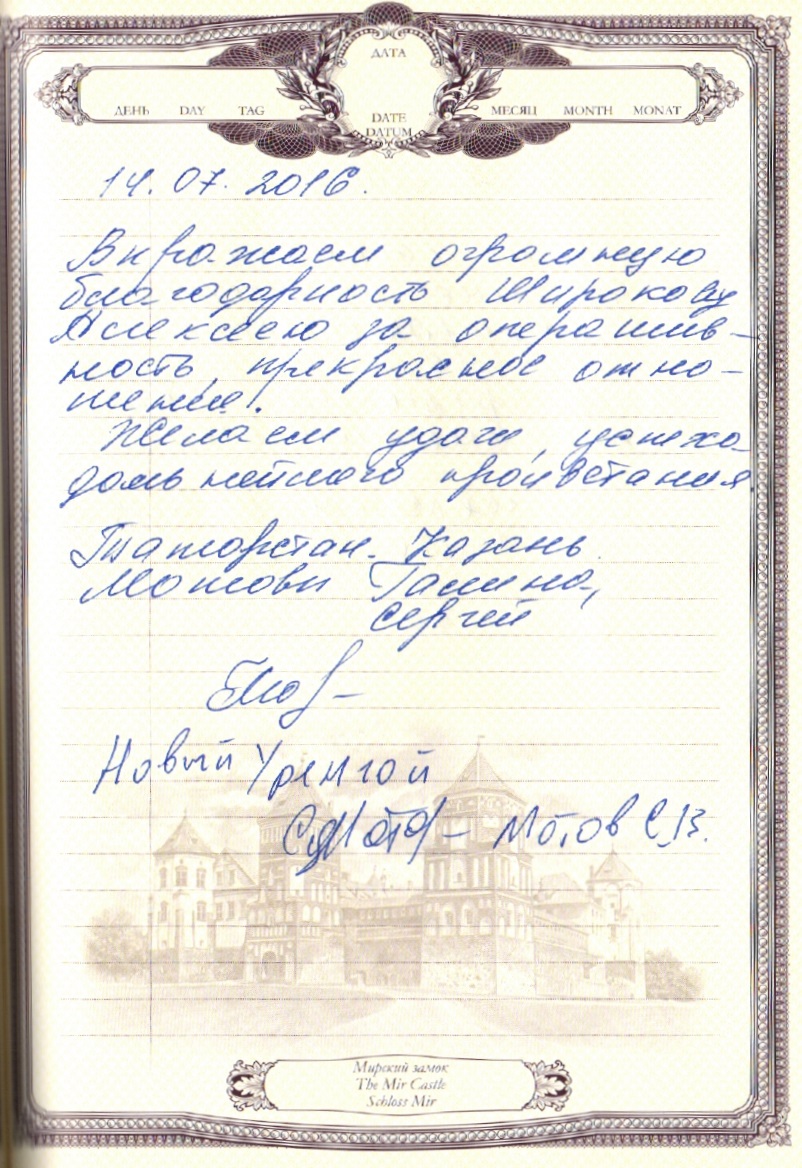 ДАТА
ДЕНЬ DAY TAG
DATE
DATUM
МЕСЯЦ MONTH MONAT
14.07.2016.
Выражаем огромную
благодарность Широкову
Алексею за оператив-
ность, прекрасное отно-
шение!
Желаем удачи, успеха
дальнейшего процветания.
Татарстан. Казань.
Мотовы Галина,
Сергей
Новый Уренгой
Мотов С.В.
Мирский замок
The Mir Castle
Schloss Mir